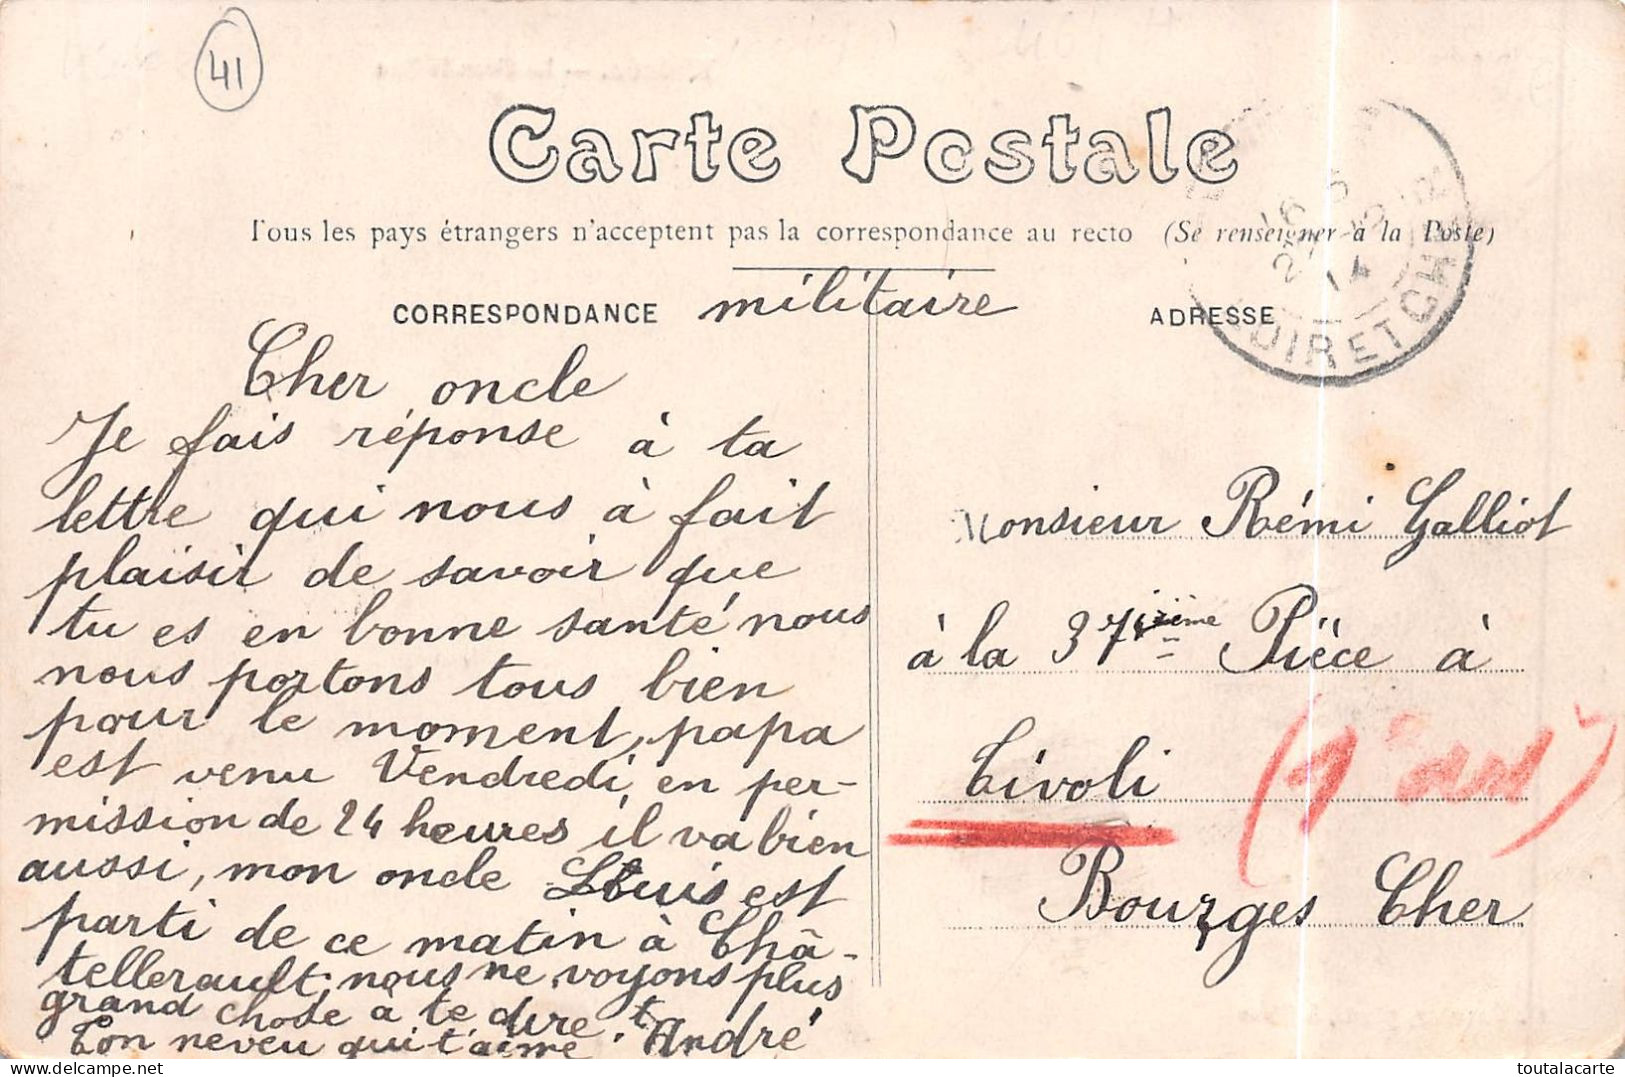 41
Carte Postale
Tous les pays étrangers n'acceptent pas la correspondance au recto (Se renseigner à la Poste)
CORRESPONDANCE militaire ADRESSE
LOIR ET CHER
14
Cher oncle
Je fais réponse à ta
lettre qui nous à fait
plaisir de savoir que
tu es en bonne santé nous
nous portons tous bien
pour le moment, papa
est venu Vendredi, en per-
mission de 24 heures il va bien
aussi, mon oncle Louis est
parti de ce matin à Châ-
tellerault. nous ne voyons plus
grand chose à te dire
Ton neveu qui t'aime. André
Monsieur Rémi Galliot
à la 37ième Pièce à
Tivoli
Bourges Cher
toutalacarte